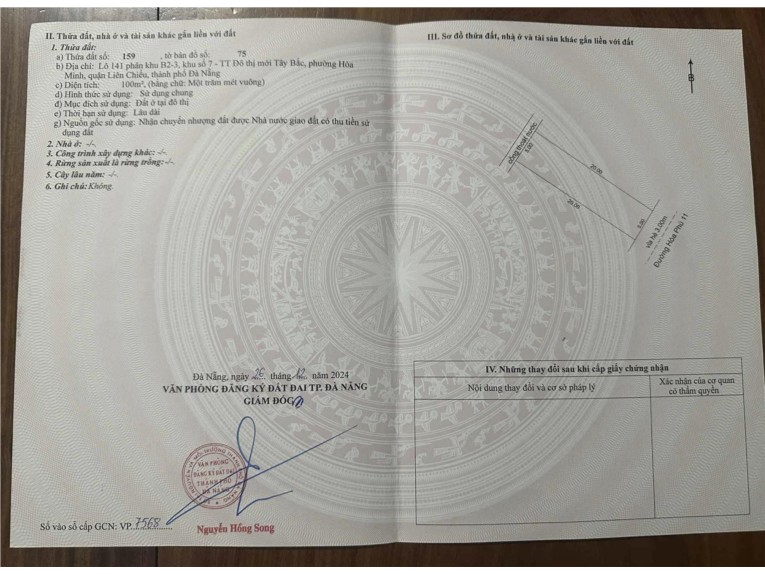 II. Thửa đất, nhà ở và tài sản khác gắn liền với đất
1. Thửa đất:
a) Thửa đất số: 159 , tờ bản đồ số: 75
b) Địa chỉ: Lô 141 phân khu B2-3, khu số 7 - TT Đô thị mới Tây Bắc, phường Hòa
Minh, quận Liên Chiểu, thành phố Đà Nẵng
c) Diện tích: 100m², (bằng chữ: Một trăm mét vuông)
d) Hình thức sử dụng: Sử dụng chung
đ) Mục đích sử dụng: Đất ở tại đô thị
e) Thời hạn sử dụng: Lâu dài
g) Nguồn gốc sử dụng: Nhận chuyển nhượng đất được Nhà nước giao đất có thu tiền sử
dụng đất
2. Nhà ở: -/-
3. Công trình xây dựng khác: -/-
4. Rừng sản xuất là rừng trồng: -/-
5. Cây lâu năm: -/-
6. Ghi chú: Không.
Đà Nẵng, ngày 26 tháng 12 năm 2024
VĂN PHÒNG ĐĂNG KÝ ĐẤT ĐAI TP. ĐÀ NẴNG
GIÁM ĐỐC
VĂN PHÒNG
ĐĂNG KÝ ĐẤT ĐAI
THÀNH PHỐ
ĐÀ NẴNG
Nguyễn Hồng Song
Số vào sổ cấp GCN: VP 7568
III. Sơ đồ thửa đất, nhà ở và tài sản khác gắn liền với đất
B
cống thoát nước
5.00
20.00
20.00
5.00
vỉa hè 3.00m
Đường Hòa Phú 11
IV. Những thay đổi sau khi cấp giấy chứng nhận
Nội dung thay đổi và cơ sở pháp lý
Xác nhận của cơ quan
có thẩm quyền